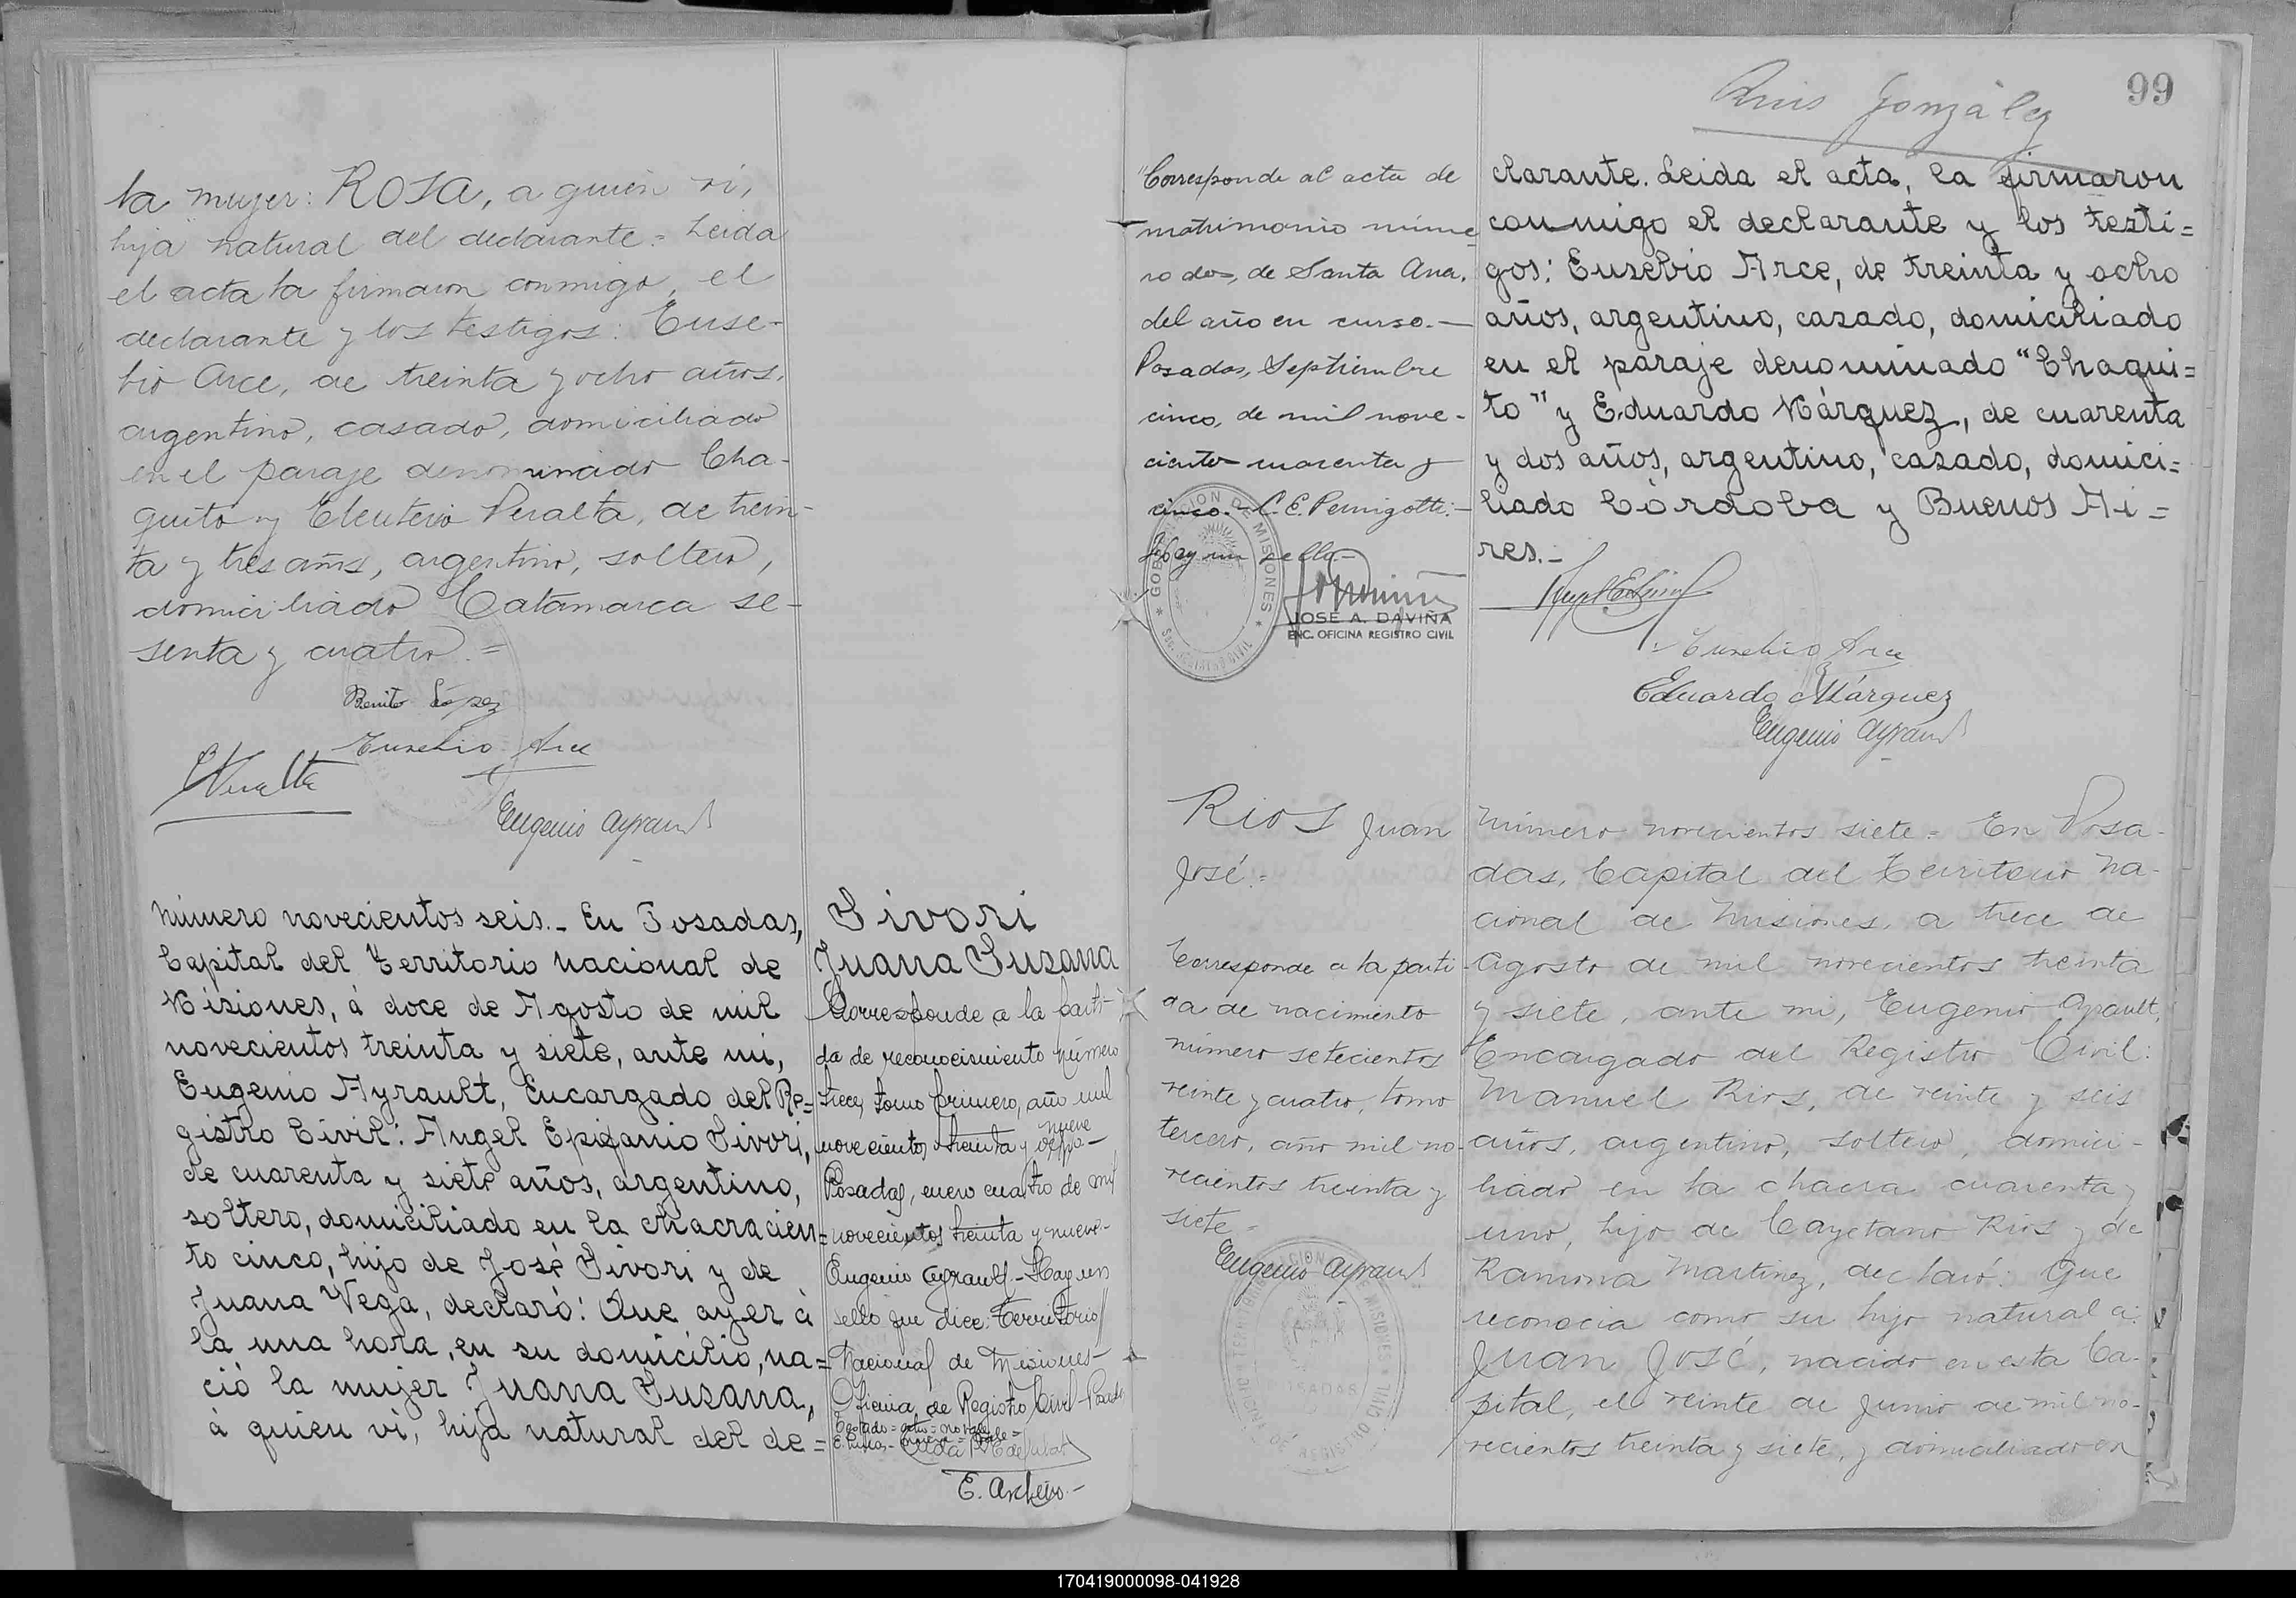 la mujer: ROSA, a quien ví,
hija natural del declarante.= Leida
el acta la firmaron conmigo, el
declarante y los testigos: Euse-
bio Arce, de treinta y ocho años,
argentino, casado, domiciliado
en el paraje denominado Cha-
quito y Eleuterio Peralta, de trein-
ta y tres años, argentino, soltero,
domiciliado Catamarca se-
senta y cuatro.=
Benito López
Eusebio Arce
EPeralta
Eugenio Ayrault
Número novecientos seis._ En Posadas,
Capital del Territorio Nacional de
Misiones, á doce de Agosto de mil
novecientos treinta y siete, ante mi,
Eugenio Ayrault, Encargado del Re=
gistro Civil: Angel Epifanio Sivori,
de cuarenta y siete años, argentino,
soltero, domiciliado en la chacra cien=
to cinco, hijo de José Sivori y de
Juana Vega, declaró: Que ayer á
la una hora, en su domicilio, na=
ció la mujer Juana Susana,
á quien vi, hija natural del de=
Sivori
Juana Susana
Corresponde a la parti-
da de reconocimiento número
trece, tomo primero, año mil
novecientos treinta y
nueve
Posadas, enero cuatro de mil
novecientos treinta y nueve-
Eugenio Ayrault.- Hay un
sello que dice: Territorio
Nacional de Misiones-
Oficina de Registro Civil-
E. Archivo.-
99
Luis González
Corresponde al acta de
matrimonio núme
ro dos, de Santa Ana,
del año en curso.—
Posadas, Septiembre
cinco, de mil nove-
cientos cuarenta y
cinco.- C. E. Pernigotti.-
Hay un sello.-
GOBERNACION DE MISIONES
JOSE A. DAVIÑA
ENC. OFICINA REGISTRO CIVIL
clarante. Leida el acta, la firmaron
conmigo el declarante y los testi=
gos: Eusebio Arce, de treinta y ocho
años, argentino, casado, domiciliado
en el paraje denominado "Chaqui=
to" y Eduardo Márquez, de cuarenta
y dos años, argentino, casado, domici=
liado Córdoba y Buenos Ai=
res.-
Eusebio Arce
Eduardo Márquez
Eugenio Ayrault
RIOS Juan
José.=
Corresponde a la parti-
da de nacimiento
número setecientos
veinte y cuatro, tomo
tercero, año mil no-
vecientos treinta y
siete=
Eugenio Ayrault
Número novecientos siete= En Posa-
das, Capital del Territorio Na-
cional de Misiones, a trece de
Agosto de mil novecientos treinta
y siete, ante mi, Eugenio Ayrault,
Encargado del Registro Civil:
Manuel Rios, de veinte y seis
años, argentino, soltero, domici-
liado en la chacra cuarenta y
uno, hijo de Cayetano Rios y de
Ramona Martinez, declaró: Que
reconocia como su hijo natural a:
Juan José, nacido en esta Ca-
pital, el veinte de Junio de mil no-
vecientos treinta y siete, y domiciliado en
170419000098-041928